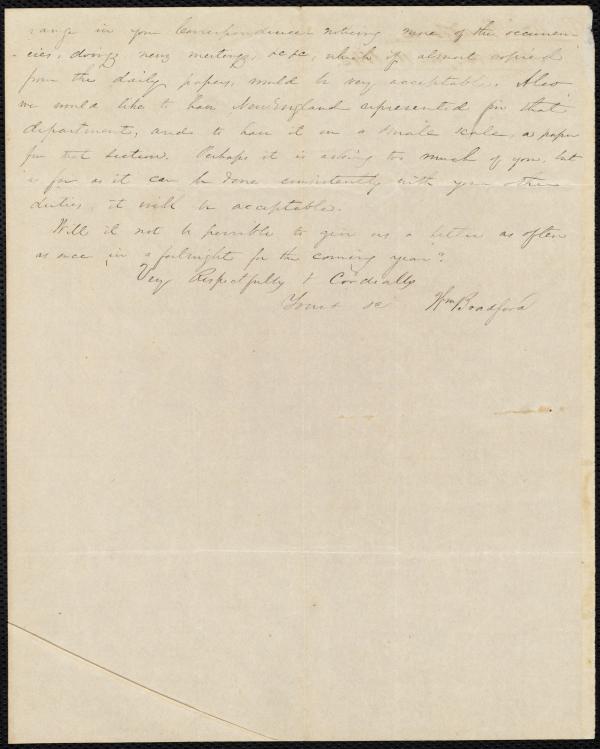 range in your Correspondence noticing more of the occurren-
cies, doings, news, meetings, &c &c, which if almost copied
from the daily papers, would be very acceptable. Also
we would like to have New England represented in that
department, and to have it on a small scale, a paper
for that section. Perhaps it is asking too much of you, but
as far as it can be done consistently with your other
duties, it will be acceptable.
Will it not be possible to give us a letter as often
as once in a fortnight for the coming year?
Very Respectfully & Cordially
Yours &c Wm Bradford